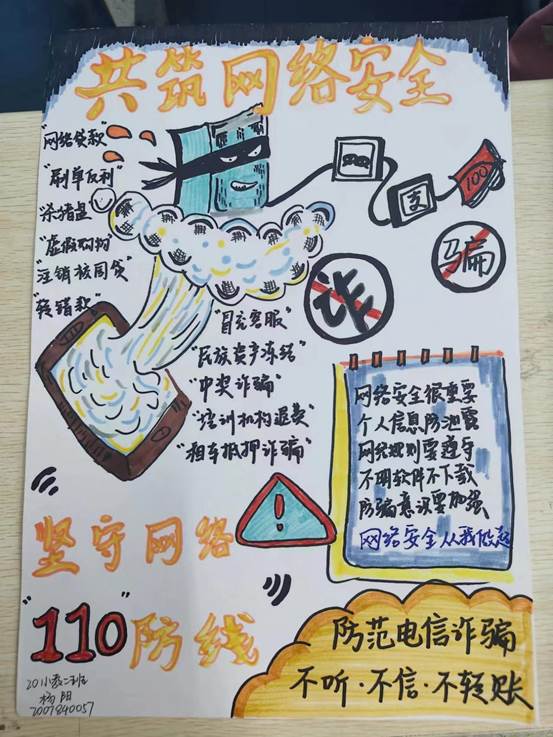 共筑网络安全
"网络贷款"
"刷单反利"
"杀猪盘"
"虚假购物"
"注销校园贷"
"转错款"
支
100
骗
诈
"冒充客服"
"民族资产冻结"
"中奖诈骗"
"培训机构退费"
"租车抵押诈骗"
网络安全很重要
个人信息防泄露
网络规则要遵守
不明软件不下载
防骗意识要加强
网络安全从我做起
!
坚守网络
"110"防线
防范电信诈骗
不听·不信·不轻账
20小教二班
杨阳
2007840057